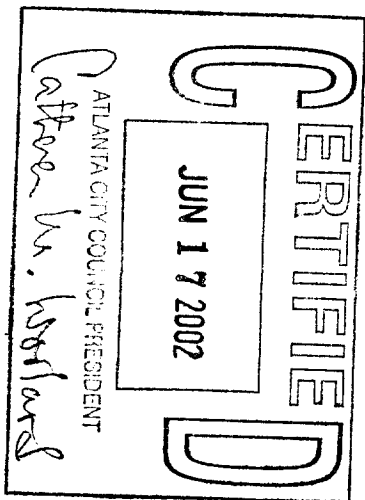 CERTIFIED
JUN 17 2002
ATLANTA CITY COUNCIL PRESIDENT
Cathy M. Woolard